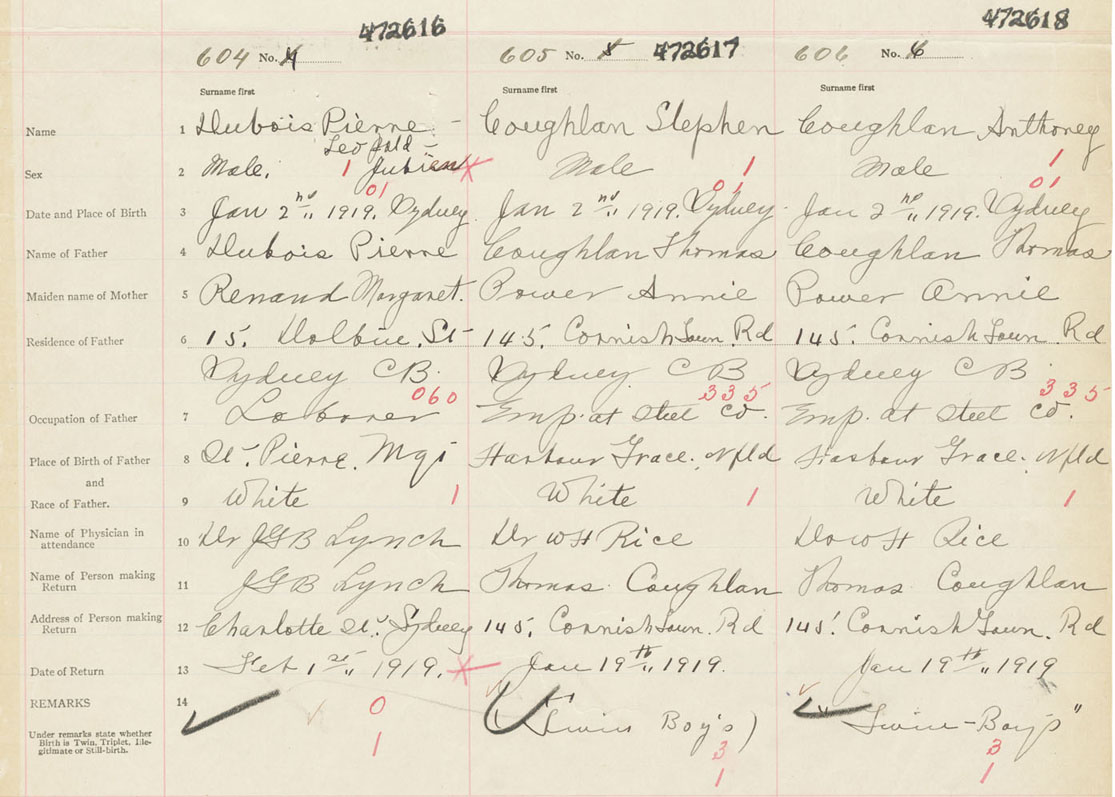 472616 472617 472618
604 No. 4 605 No. 5 606 No. 6
Surname first Surname first Surname first
Name 1 Dubois Pierre - Coughlan Stephen Coughlan Anthoney
Leopold -
Sex 2 Male. 1 Male 1 Male 1
01 01 01
Date and Place of Birth 3 Jan 2nd " 1919. Sydney Jan 2nd " 1919. Sydney Jan 2nd " 1919. Sydney
Name of Father 4 Dubois Pierre Coughlan Thomas Coughlan Thomas
Maiden name of Mother 5 Renaud Margaret. Power Annie Power Annie
Residence of Father 6 15. St 145. Cornish Town. Rd 145. Cornish Town. Rd
Sydney CB. Sydney CB Sydney CB
060 335 335
Occupation of Father 7 Laborer Emp. at Steel Co. Emp. at Steel Co.
Place of Birth of Father 8 St. Pierre. Mqi Harbour Grace. Nfld Harbour Grace. Nfld
and
Race of Father. 9 White 1 White 1 White 1
Name of Physician in
attendance 10 Dr JGB Lynch Dr WH Rice Dr WH Rice
Name of Person making
Return 11 JGB Lynch Thomas Coughlan Thomas Coughlan
Address of Person making
Return 12 Charlotte St. Sydney 145. Cornish Town. Rd 145. Cornish Town. Rd
Date of Return 13 Feb 1st " 1919. Jan 19th " 1919. Jan 19th " 1919
REMARKS 14 0 (Twin Boy's) "Twin-Boy's"
Under remarks state whether
Birth is Twin, Triplet, Ille-
gitimate or Still-birth.
1 3 3
1 1